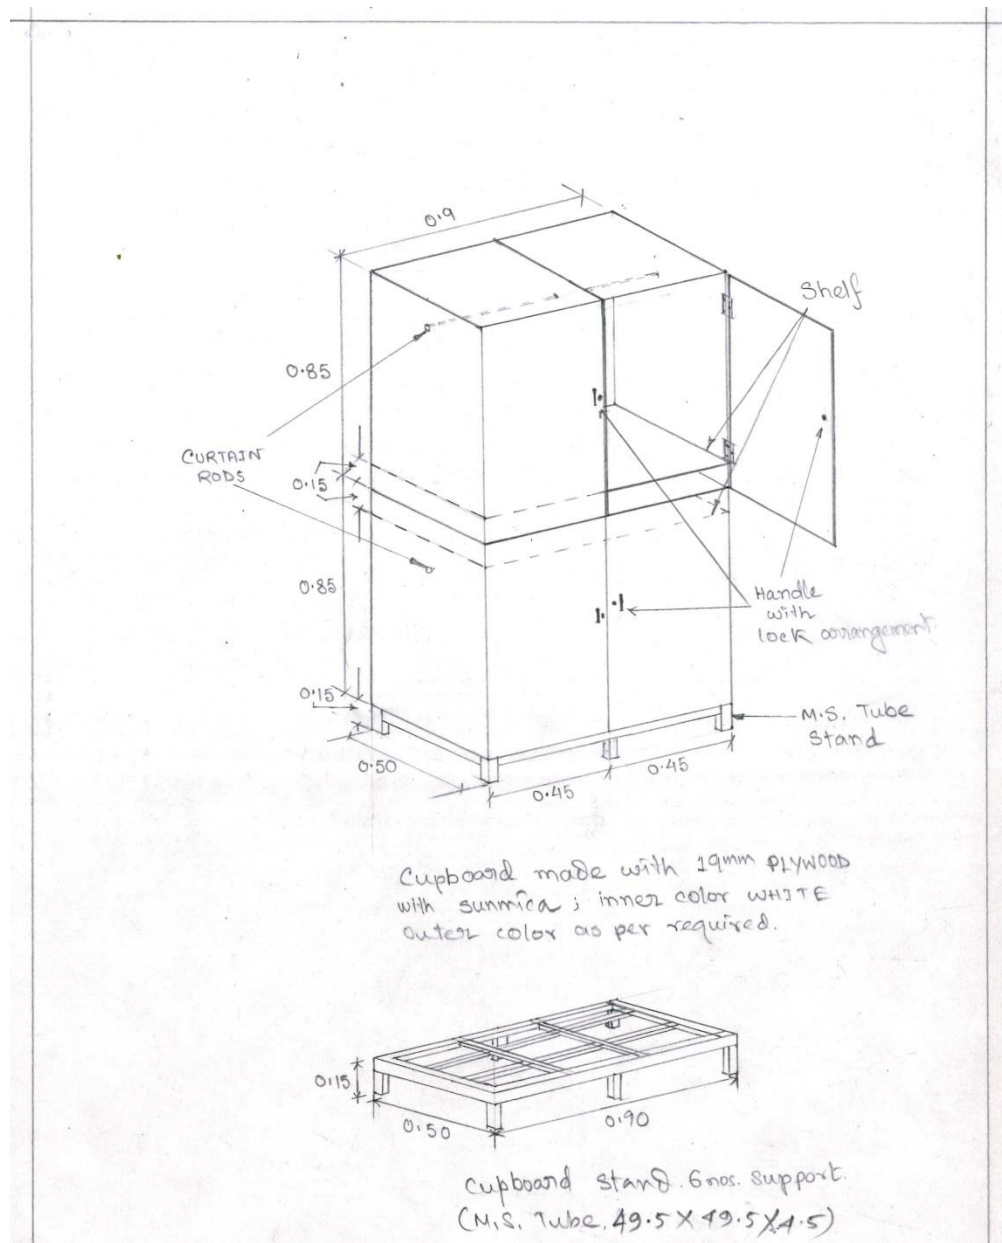 0.9
Shelf
0.85
CURTAIN
RODS
0.15
0.85
Handle
with
lock arrangement.
0.15
M.S. Tube
Stand
0.50
0.45
0.45
Cupboard made with 19mm PLYWOOD
with sunmica ; inner color WHITE
outer color as per required.
0.15
0.50
0.90
Cupboard Stand. 6nos. Support.
(M.S. Tube. 49.5 X 49.5 X 4.5)